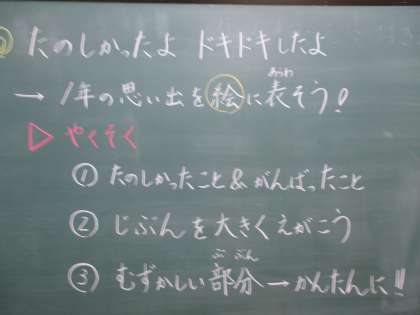 たのしかったよ ドキドキしたよ
→ 1年の思い出を絵に表そう!
あらわ
▷ やくそく
① たのしかったこと&がんばったこと
② じぶんを大きくえがこう
ぶ ぶん
③ むずかしい部分→かんたんに!!